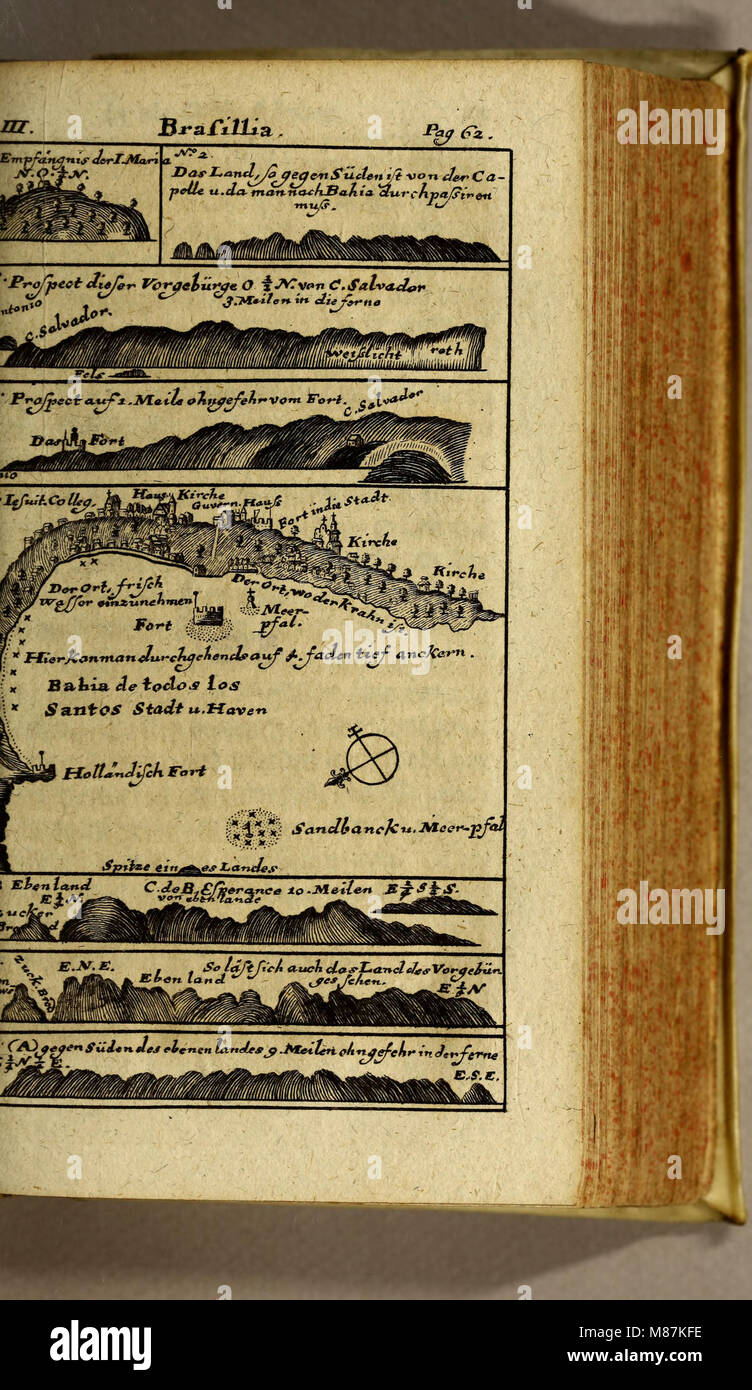 III. Braſillia. Pag 62.
Empfängnis der I. Maria
N. O. ¼ N.
No. 2.
Das Land, ſo gegen Süden iſt von der Ca-
pelle u. da man nach Bahia durchpaſsiren
muſs.
Proſpect dieſer Vorgebürge O ½ N. von C. Salvador
3. Meilen in die ferne
C. Salvador.
Weiſslicht
roth
Fels
Proſpect auf 1. Meile ohngefehr vom Fort.
C. Salvador
Das Fort
Ieſuit. Colleg.
Haus
Kirche
Guvern. Hauſs
Fort in die Stadt
Kirche
Kirche
Der Ort, friſch
Weſſer einzunehmen
Der Ort, wo der Krahn iſt.
Fort
Meer-
pfal.
Hier kan man durchgehends auf 4. faden tief anckern.
Bahia de todos los
Santos Stadt u. Haven
Holländiſch Fort
Sandbanck u. Meer-pfal
Spitze ein es Landes
Eben land
C. de B. Eſperance 10. Meilen
von eben lande
E. N. E.
Eben land
Zuck. Brod
So läſt ſich auch das Land des Vorgebür
ges ſehen.
E ½ N
(A) gegen Süden des ebenen landes 9. Meilen ohngefehr in der ferne
E. S. E.
alamy
Image ID: M87KFE
www.alamy.com